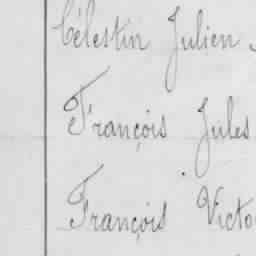 Célestin Julien
François Jules
François Victo